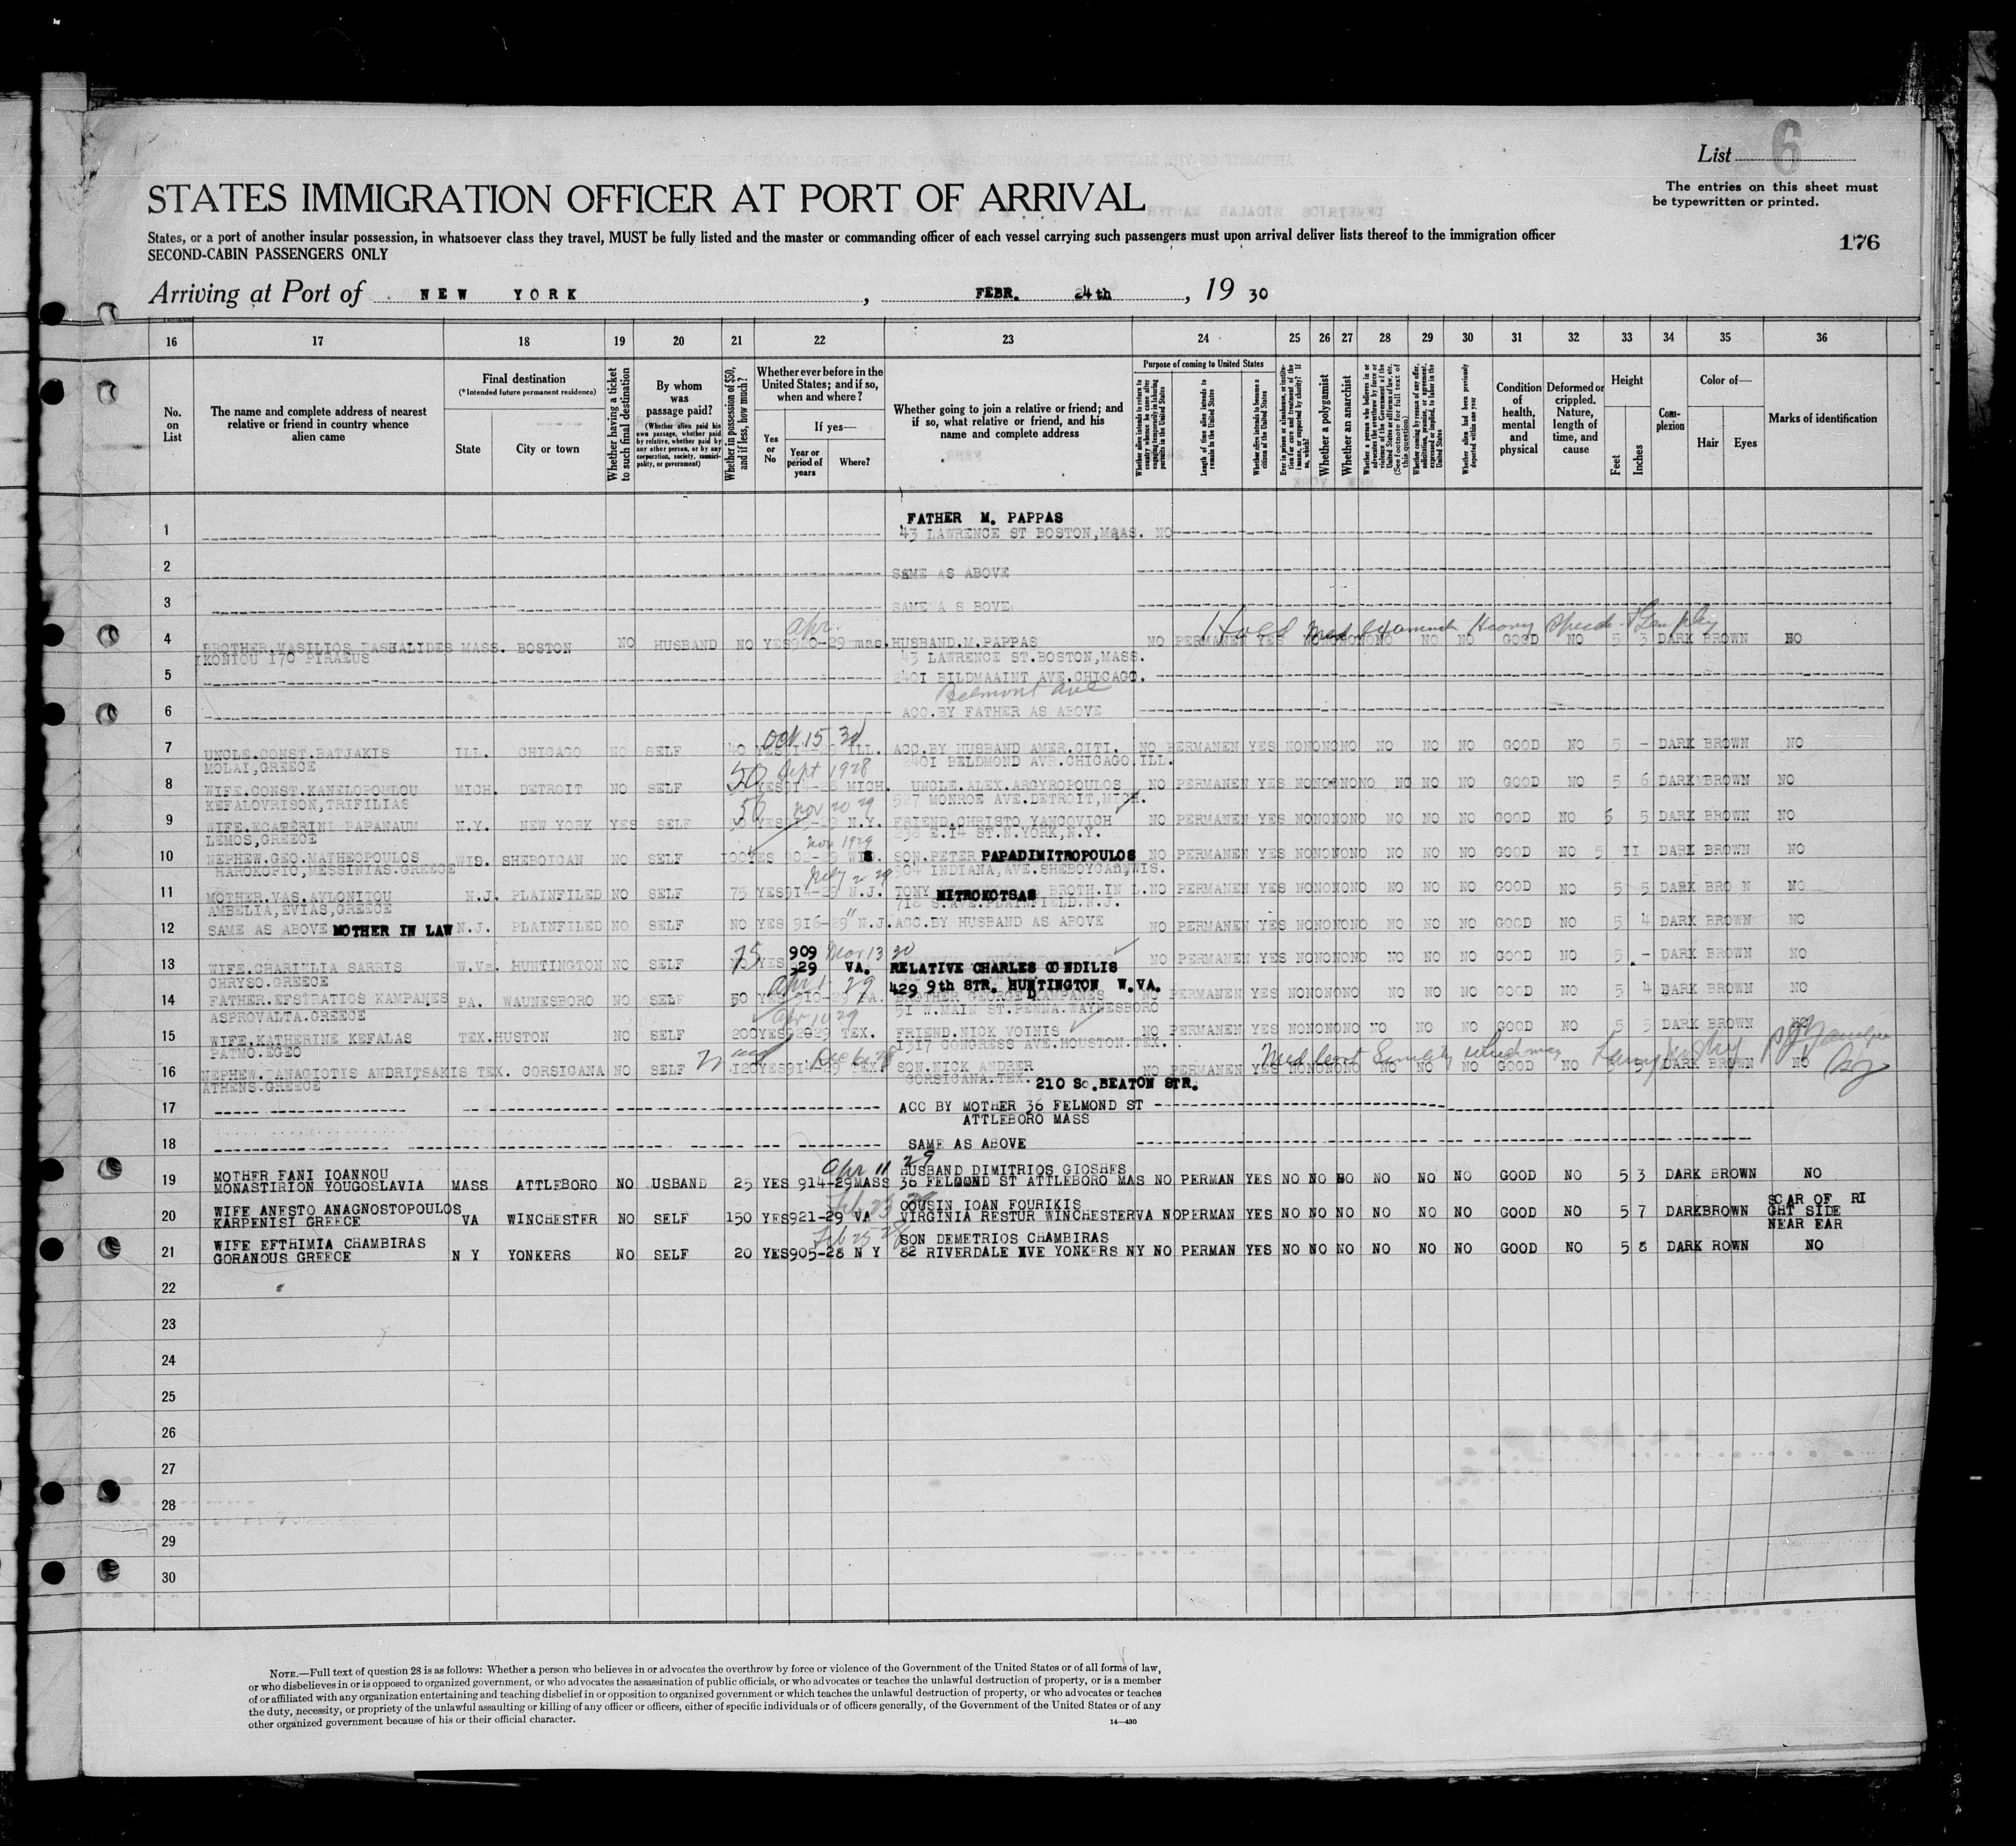 List 6
The entries on this sheet must
be typewritten or printed.
STATES IMMIGRATION OFFICER AT PORT OF ARRIVAL
States, or a port of another insular possession, in whatsoever class they travel, MUST be fully listed and the master or commanding officer of each vessel carrying such passengers must upon arrival deliver lists thereof to the immigration officer
SECOND-CABIN PASSENGERS ONLY
176
Arriving at Port of NEW YORK , FEBR. 24th , 19 30
16 17 18 19 20 21 22 23 24 25 26 27 28 29 30 31 32 33 34 35 36
No. on List
The name and complete address of nearest relative or friend in country whence alien came
Final destination
(*Intended future permanent residence)
State
City or town
Whether having a ticket to such final destination
By whom was passage paid?
(Whether alien paid his own passage, whether paid by relative, whether paid by any other person, or by any corporation, society, municipality, or government)
Whether in possession of $50, and if less, how much?
Whether ever before in the United States; and if so, when and where?
Yes or No
If yes—
Year or period of years
Where?
Whether going to join a relative or friend; and if so, what relative or friend, and his name and complete address
Purpose of coming to United States
Length of time alien intends to remain in the United States
Whether alien intends to become a citizen of the United States
Whether a polygamist
Whether an anarchist
Condition of health, mental and physical
Deformed or crippled. Nature, length of time, and cause
Height
Feet
Inches
Complexion
Color of—
Hair
Eyes
Marks of identification
1 FATHER M. PAPPAS
43 LAWRENCE ST BOSTON, MAAS. NO
2 SAME AS ABOVE
3 SAME A S BOVE
Apr.
Hold
4 BROTHER.VASILIOS DASHALIDES MASS. BOSTON NO HUSBAND NO YES 910-29 mas. HUSBAND.M.PAPPAS NO PERMANEN YES NO NO NO NO NO NO GOOD NO 5 3 DARK BROWN NO
YKONIOU 170 PIRAEUS 43 LAWRENCE ST.BOSTON,MASS.
5 2401 BILDMAAINT AVE.CHICAGO.
Belmont Ave
6 ACC.BY FATHER AS ABOVE
Oct 15
7 UNCLE.CONST.BATJAKIS ILL. CHICAGO NO SELF 40 YES ILL. ACC.BY HUSBAND AMER.CITI. NO PERMANEN YES NO NO NO NO NO NO NO GOOD NO 5 - DARK BROWN NO
MOLAI,GREECE 2401 BELDMOND AVR.CHICAGO ILL.
50 Sept 1928
8 WIFE.CONST.KANELOPOULOU MICH. DETROIT NO SELF YES MICH. UNCLE.ALEX.ARGYROPOULOS NO PERMANEN YES NO NO NO NO NO NO NO GOOD NO 5 6 DARK BROWN NO
KEFALOVRISON,TRIFILIAS MONROE AVE.DETROIT,MICH.
50 Nov 20 29
9 WIFE.ECATERINI PAPANAUM N.Y. NEW YORK YES SELF YES N.Y. FRIEND.CHRISTO YANCOVICH NO PERMANEN YES NO NO NO NO NO NO NO GOOD NO 5 5 DARK BROWN NO
LEMOS,GREECE E.14 ST.N.YORK,N.Y.
Nov 1929
10 NEPHEW.GEO.MATHEOPOULOS WIS. SHEBOIGAN NO SELF 100 YES 902-29 WIS. SON.PETER PAPADIMITROPOULOS NO PERMANEN YES NO NO NO NO NO NO NO GOOD NO 5 II DARK BROWN NO
HAROKOPIO,MESSINIAS.GREECE INDIANA,AVE.SHEBOYGAN,WIS.
11 MOTHER.VAS.AVLONITOU N.J. PLAINFILED NO SELF 75 YES 914-29 N.J. TONY MITROKOTSAS BROTH.IN L. NO PERMANEN YES NO NO NO NO NO NO NO GOOD NO 5 5 DARK BRO N NO
AMBELIA,EVIAS,GREECE 718 S.AVE.PLAINFIELD.N.J.
12 SAME AS ABOVE MOTHER IN LAW N.J. PLAINFILED NO SELF NO YES 916-29 N.J. ACC.BY HUSBAND AS ABOVE NO PERMANEN YES NO NO NO NO NO NO NO GOOD NO 5 4 DARK BROWN NO
75 909 Mar 13 30
13 WIFE.CHARIKLIA SARRIS W.Va. HUNTINGTON NO SELF YES -29 VA. RELATIVE CHARLES CONDILIS NO PERMANEN YES NO NO NO NO NO NO NO GOOD NO 5 - DARK BROWN NO
CHRYSO.GREECE 429 9th STR. HUNTINGTON W.VA.
14 FATHER.EFSTRATIOS KAMPANES PA. WAUNESBORO NO SELF 50 YES 910-29 PA. BROTHER GEORGE KAMPANES NO PERMANEN YES NO NO NO NO NO NO NO GOOD NO 5 4 DARK BROWN NO
ASPROVALTA.GREECE 51 W.MAIN ST.PENNA.WAYNESBORO
Apr 14 29
15 WIFE.KATHERINE KEFALAS TEX. HUSTON NO SELF 200 YES TEX. FRIEND.NICK VOINIS NO PERMANEN YES NO NO NO NO NO NO NO GOOD NO 5 5 DARK BROWN NO
PATMO.EGEO 1317 CONGRESS AVE.HOUSTON.TEX.
16 NEPHEW.PANAGIOTIS ANDRITSAKIS TEX. CORSICANA NO SELF 120 YES 914-29 TEX. SON.NICK ANDRER NO PERMANEN YES NO NO NO NO NO NO NO GOOD NO 5 5 DARK BROWN NO
ATHENS.GREECE CORSICANA.TEX. 210 So.BEATON STR.
17 ACC BY MOTHER 36 FELMOND ST
ATTLEBORO MASS
18 SAME AS ABOVE
Apr 11 29
19 MOTHER FANI IOANNOU HUSBAND DIMITRIOS GIOSHES
MONASTIRION YOUGOSLAVIA MASS ATTLEBORO NO USBAND 25 YES 914-29 MASS 36 FELMOND ST ATTLEBORO MAS NO PERMAN YES NO NO NO NO NO NO GOOD NO 5 3 DARK BROWN NO
20 WIFE ANESTO ANAGNOSTOPOULOS COUSIN IOAN FOURIKIS SCAR OF RI
KARPENISI GREECE VA WINCHESTER NO SELF 150 YES 921-29 VA VIRGINIA RESTUR WINCHESTER VA NO PERMAN YES NO NO NO NO NO NO GOOD NO 5 7 DARK BROWN GHT SIDE
NEAR EAR
Feb 25 28
21 WIFE EFTHIMIA CHAMBIRAS SON DEMETRIOS CHAMBIRAS
GORANOUS GREECE N Y YONKERS NO SELF 20 YES 905-28 N Y 82 RIVERDALE AVE YONKERS NY NO PERMAN YES NO NO NO NO NO NO GOOD NO 5 8 DARK ROWN NO
22
23
24
25
26
27
28
29
30
NOTE.—Full text of question 28 is as follows: Whether a person who believes in or advocates the overthrow by force or violence of the Government of the United States or of all forms of law,
or who disbelieves in or is opposed to organized government, or who advocates the assassination of public officials, or who advocates or teaches the unlawful destruction of property, or is a member
of or affiliated with any organization entertaining and teaching disbelief in or opposition to organized government or which teaches the unlawful destruction of property, or who advocates or teaches
the duty, necessity, or propriety of the unlawful assaulting or killing of any officer or officers, either of specific individuals or of officers generally, of the Government of the United States or of any
other organized government because of his or their official character.
14—430